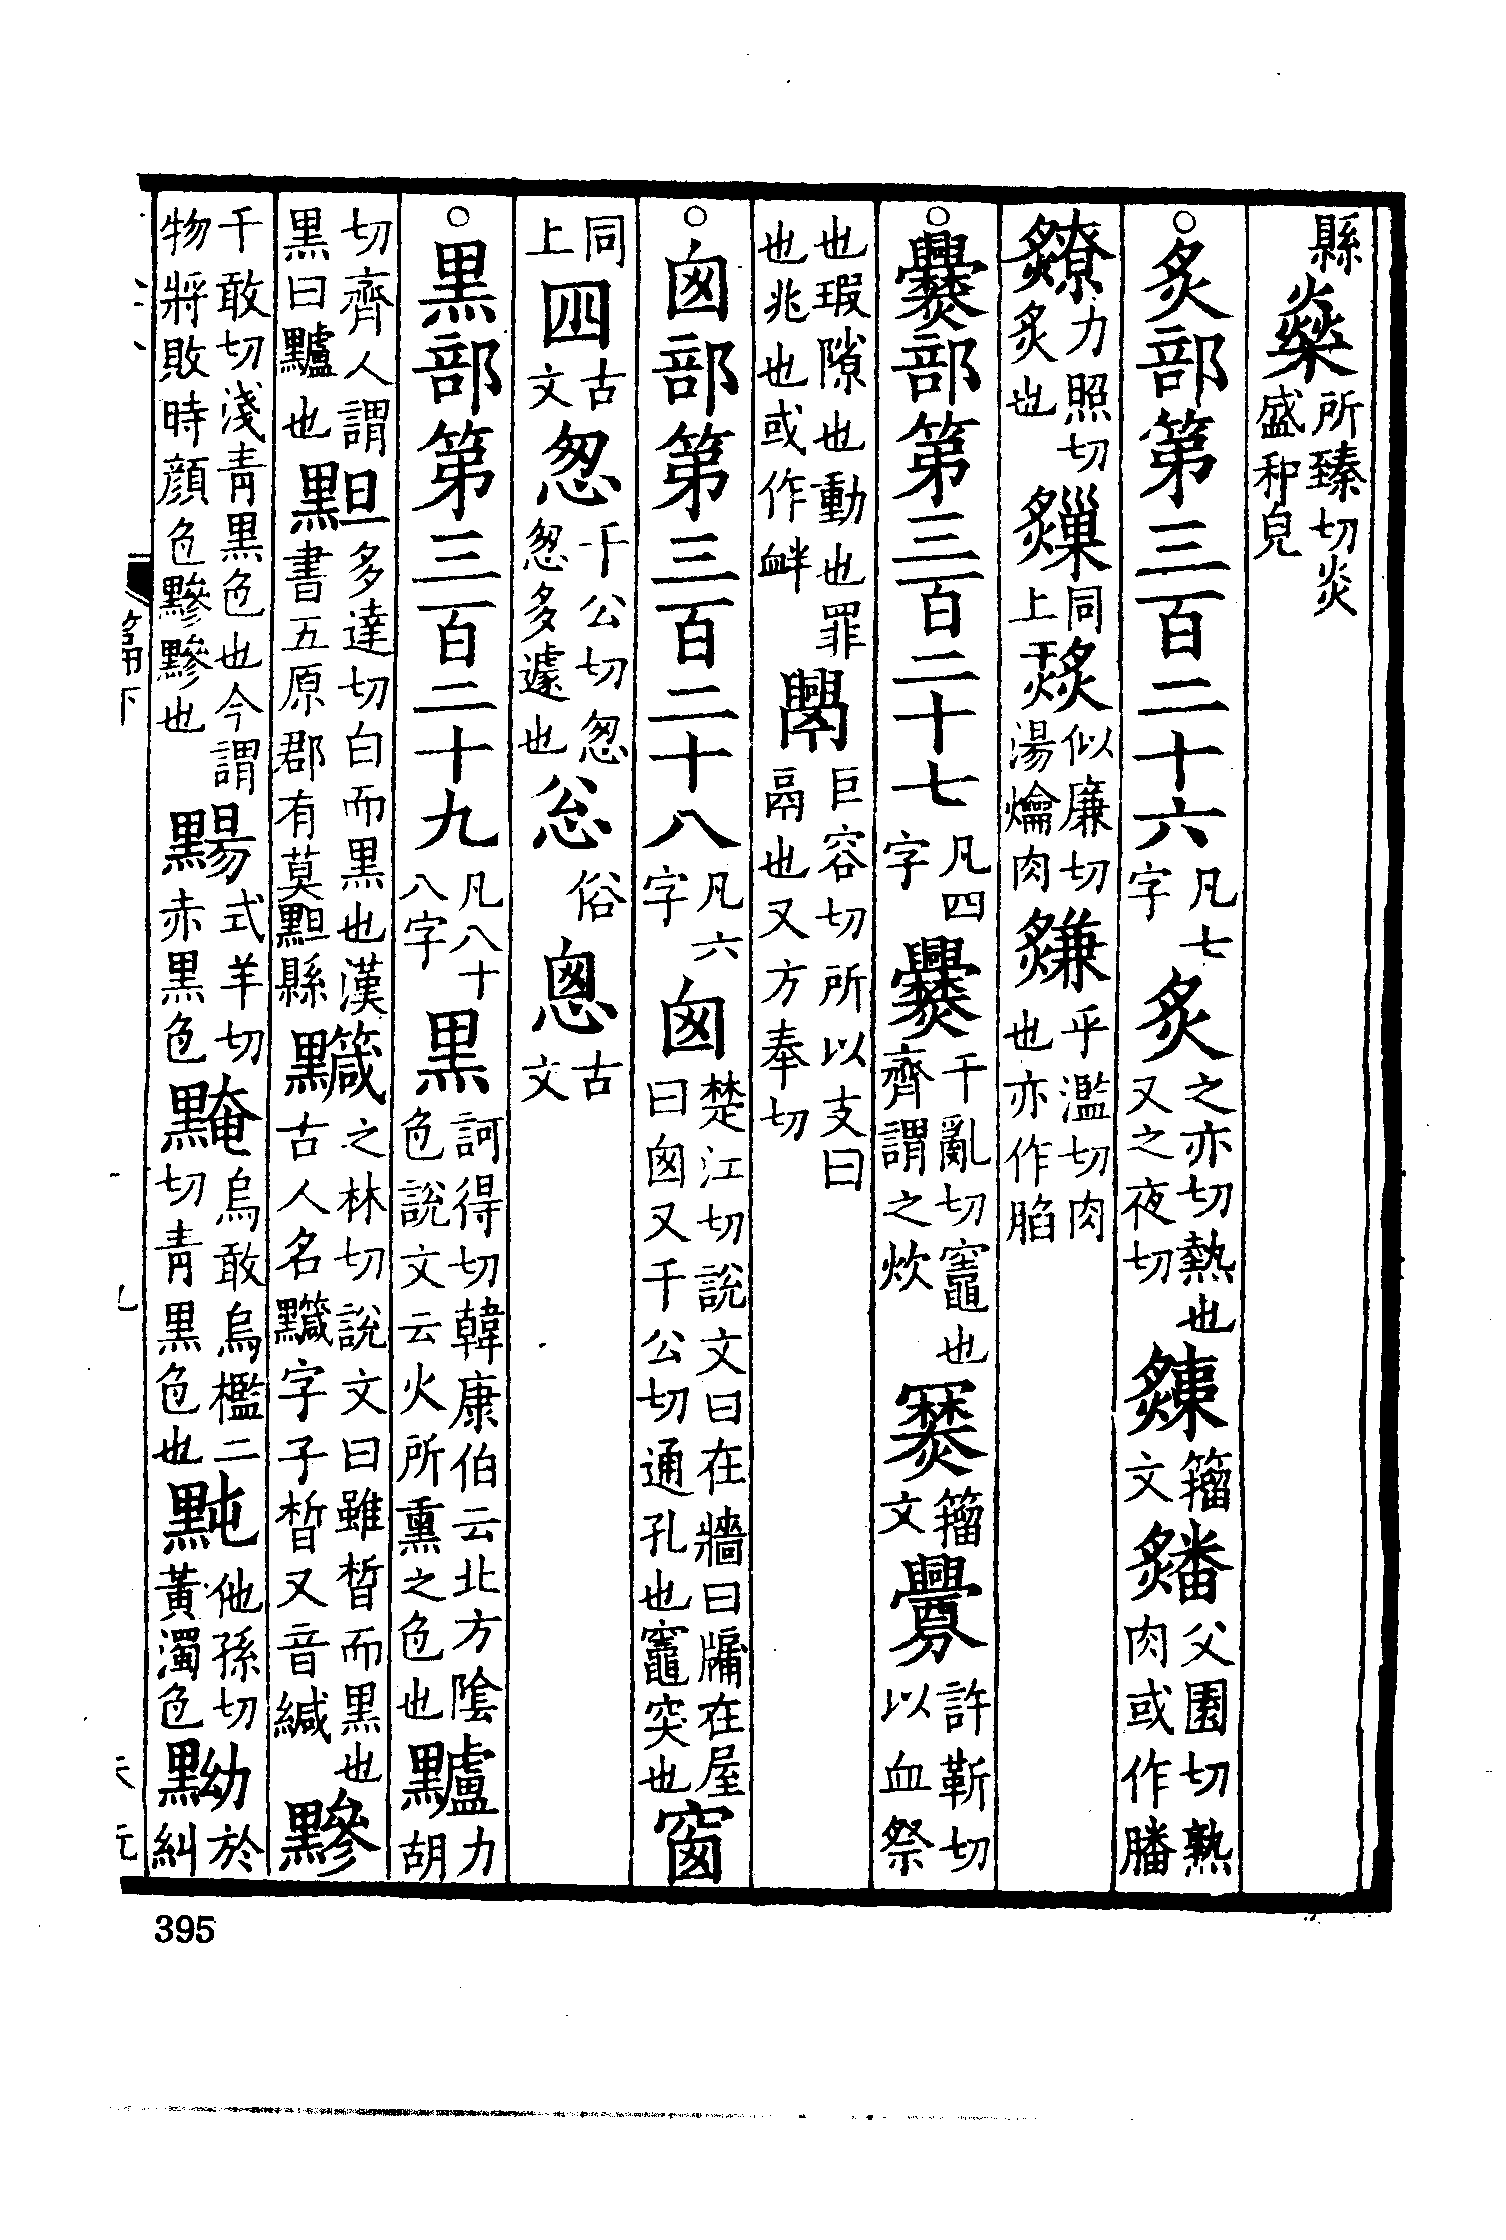 縣燊所臻切炎盛和皃
○炙部第三百二十六凡七字炙之亦切熱也又之夜切𤑒籀文𤒟父園切熟肉或作膰
爒力照切炙也𤓎同上燅似廉切湯爚肉㷿乎濫切肉也亦作䐄
○爨部第三百二十七凡四字爨千亂切竈也齊謂之炊籀文釁許靳切以血祭
也瑕隙也動也罪也兆也或作衅巨容切所以支曰鬲也又方奉切
○囪部第三百二十八凡六字囪楚江切說文曰在牆曰牖在屋曰囪又千公切通孔也竈突也窗
同上四古文怱千公切怱怱多遽也忩俗悤古文
○黑部第三百二十九凡八十八字黑訶得切韓康伯云北方陰色說文云火所熏之色也黸力胡
切齊人謂黑曰黸也䵣多達切白而黑也漢書五原郡有莫䵣縣黬之林切說文曰雖晳而黑也古人名黬字子晳又音緘黲
千敢切淺青黑色也今謂物將敗時顏色黲黲也䵮式羊切赤黑色黤烏敢烏檻二切青黑色也黗他孫切黃濁色黝於糾
篇下
395